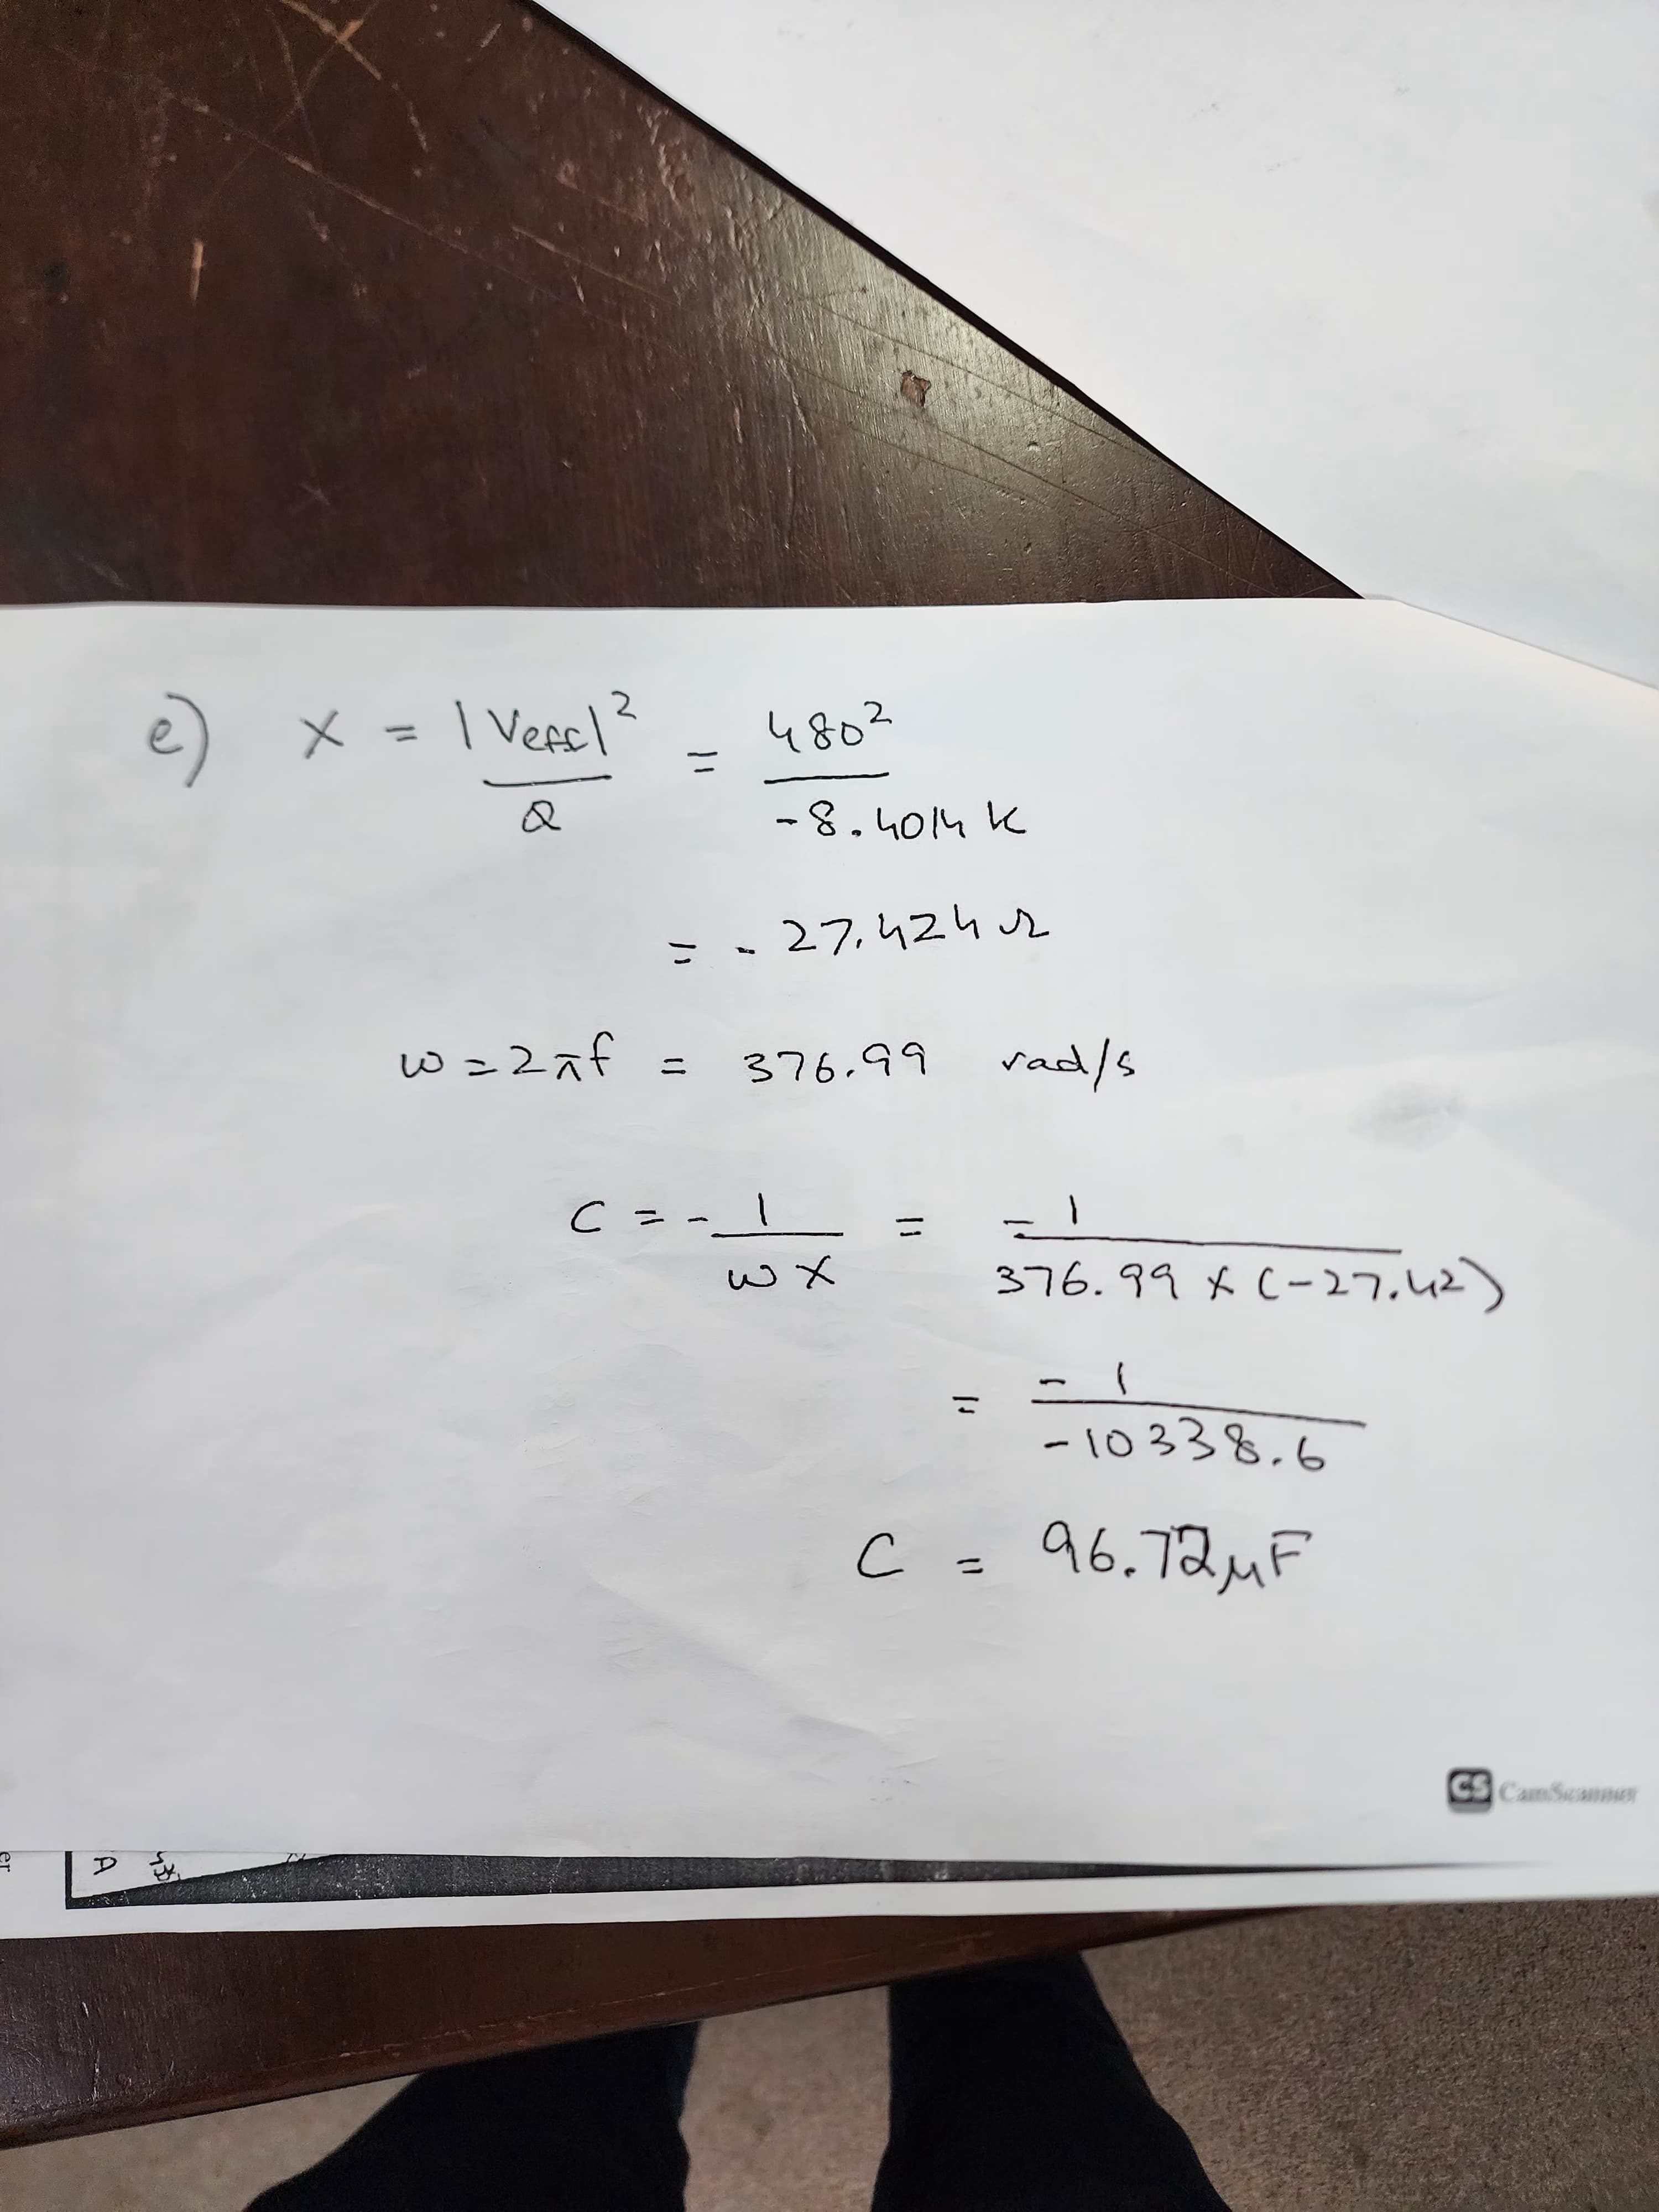 e) X = |Veff|² / Q = 480² / -8.4014 k
= - 27.424 Ω
ω = 2πf = 376.99 rad/s
C = - 1 / ωX = - 1 / 376.99 × (-27.42)
= - 1 / -10338.6
C = 96.72 μF
CS CamScanner
er
A